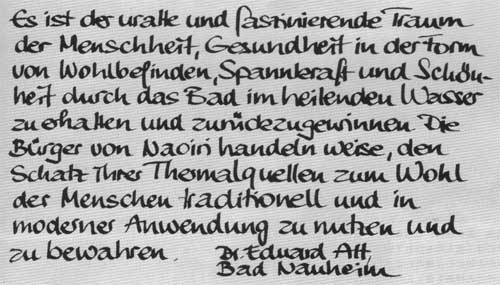 Es ist der uralte und faszinierende Traum
der Menschheit, Gesundheit in der Form
von Wohlbefinden, Spannkraft und Schön-
heit durch das Bad im heilenden Wasser
zu erhalten und zurückzugewinnen. Die
Bürger von Naoiri handeln weise, den
Schatz Ihrer Thermalquellen zum Wohl
der Menschen traditionell und in
moderner Anwendung zu nutzen und
zu bewahren. Dr. Eduard Alt,
Bad Nauheim